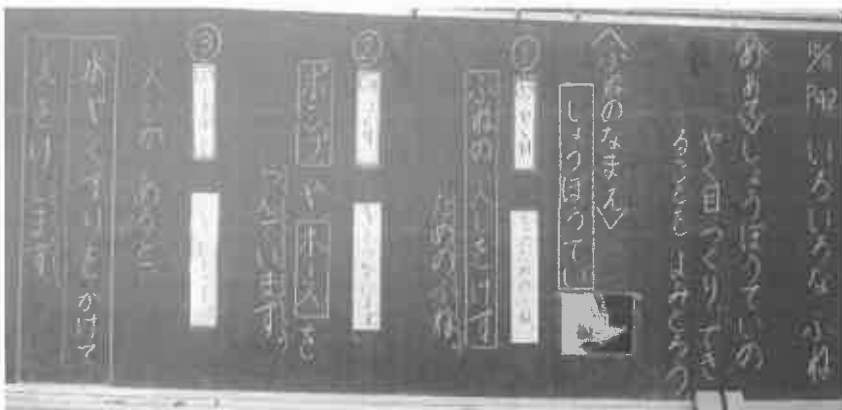 P92 いろいろな ふね
しょうぼうていの
やく目 つくり でき
ることを よみとろう
〈ふねのなまえ〉
しょうぼうてい
①
ふねの 火をけす
ための ふね。
②
ポンプ や ホース を
つんでいます。
③
火じが あると、
水や くすりを かけて
火をけします。